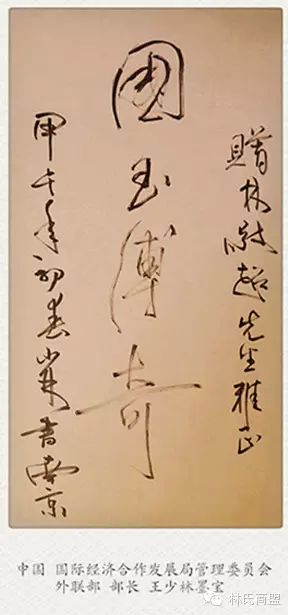 贈林超先生雅正
國玉傳奇
甲午年初春少林書南京
中国 国际经济合作发展局管理委员会
外联部 部长 王少林墨宝
林氏商盟